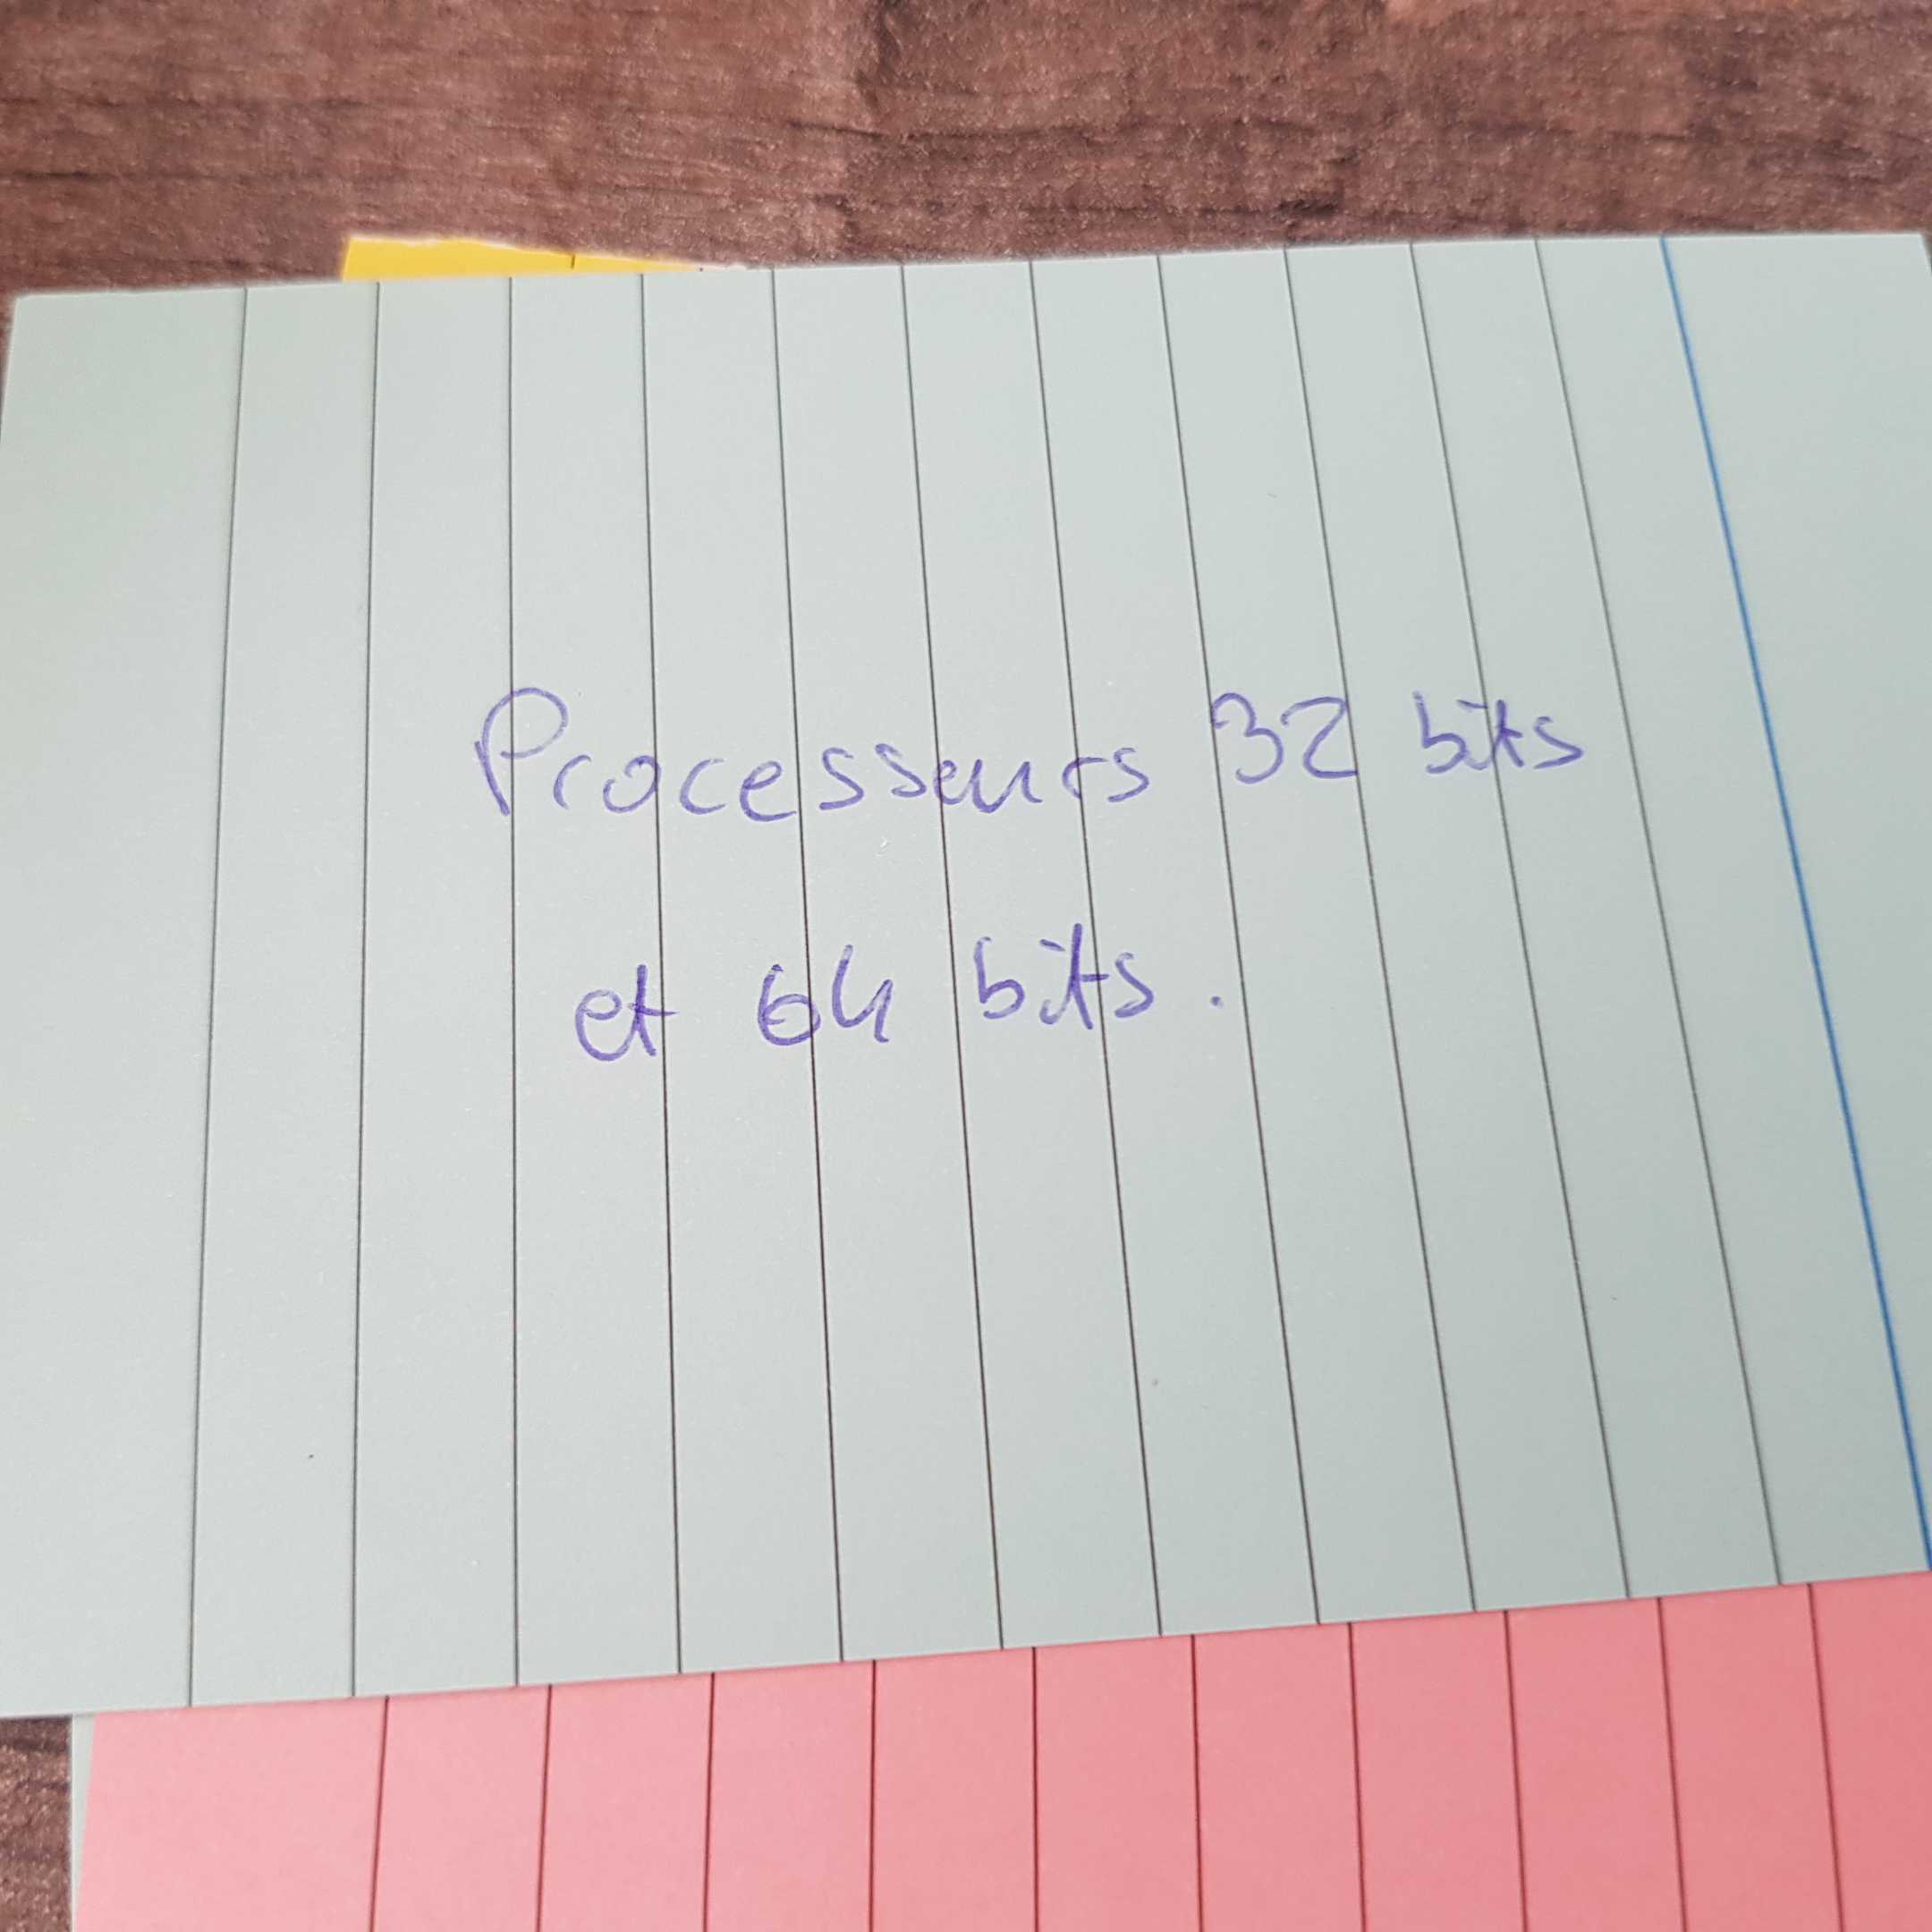 Processeurs 32 bits
et 64 bits.